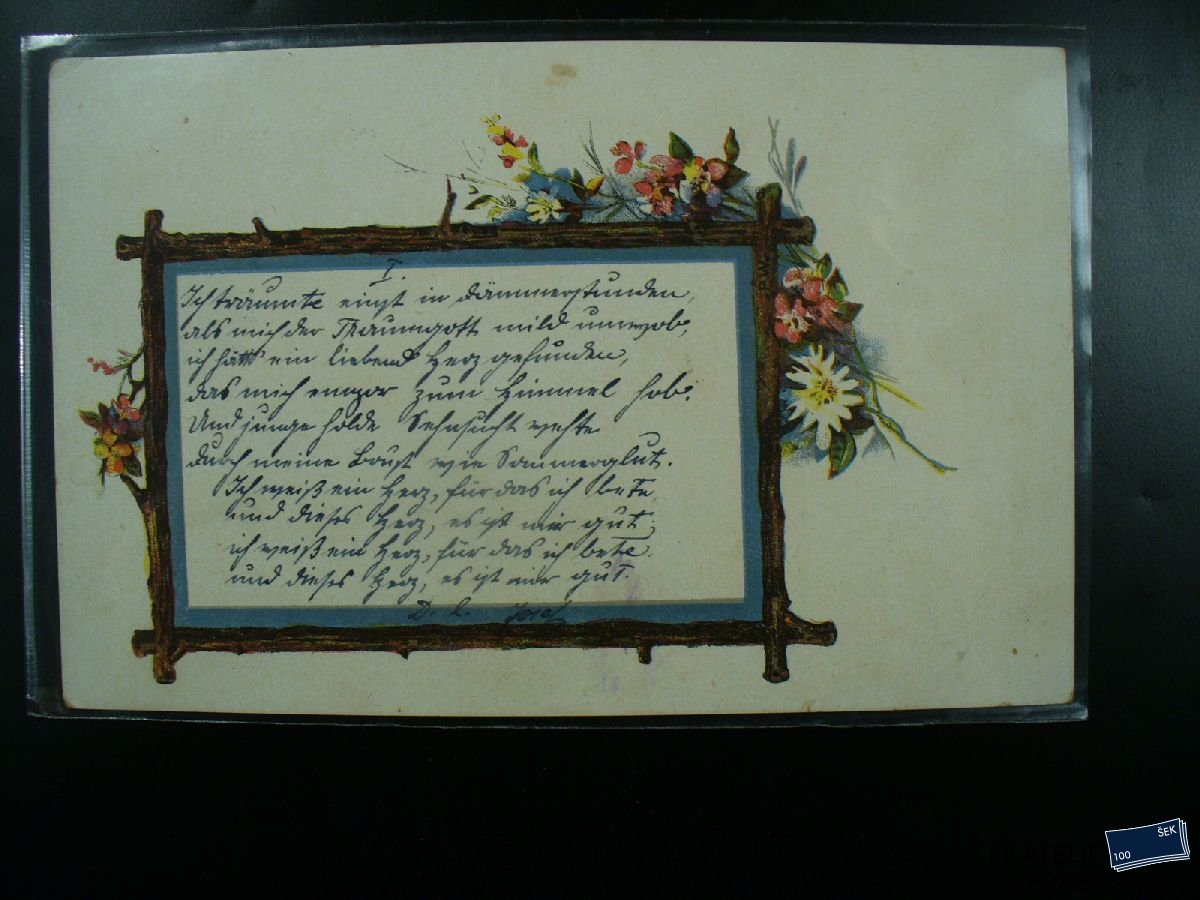 I.
Ich träumte einst in Dämmerstunden,
als mich der Traumgott mild umwob,
ich hätt' ein liebend Herz gefunden,
das mich empor zum Himmel hob.
Und junge holde Sehnsucht wehte
durch meine Brust wie Sommerglut.
Ich weiß ein Herz, für das ich bete,
und dieses Herz, es ist mir gut;
ich weiß ein Herz, für das ich bete
und dieses Herz, es ist mir gut.
D. l. Josef
100 ŠEK